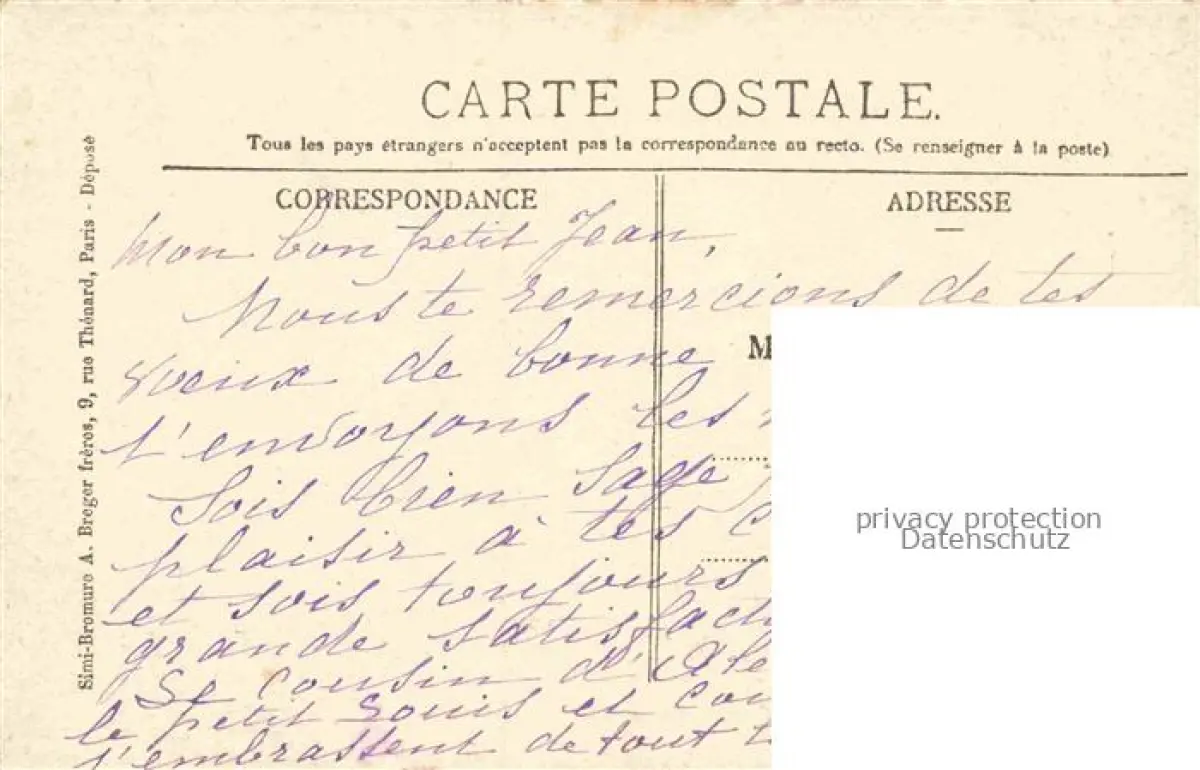 CARTE POSTALE.
Tous les pays étrangers n'acceptent pas la correspondance au recto. (Se renseigner à la poste)
CORRESPONDANCE
ADRESSE
Simi-Bromure A. Breger frères, 9, rue Thénard, Paris - Déposé
Mon bon petit Jean,
Nous te remercions de tes
voeux de bonne
t'envoyons les
Sois bien sage
plaisir à tes
et sois toujours
grande satisfact
Se cousin d'Ale
le petit Souis et cou
t'embrassent de tout
M
privacy protection
Datenschutz